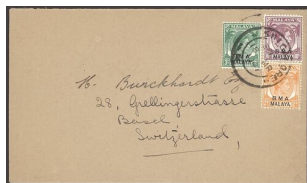 MALAYA
MALAYA
BMA
MALAYA
Burckhardt
28, Grellingerstrasse
Basel
Switzerland